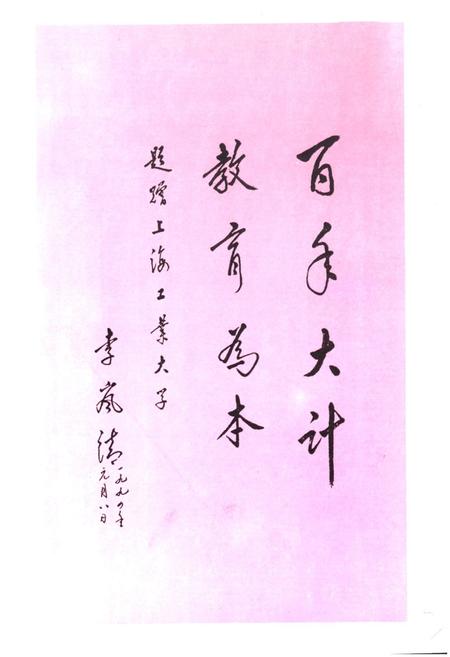 百年大计
教育為本
题赠上海工业大学
李岚清
一九九四年
元月八日